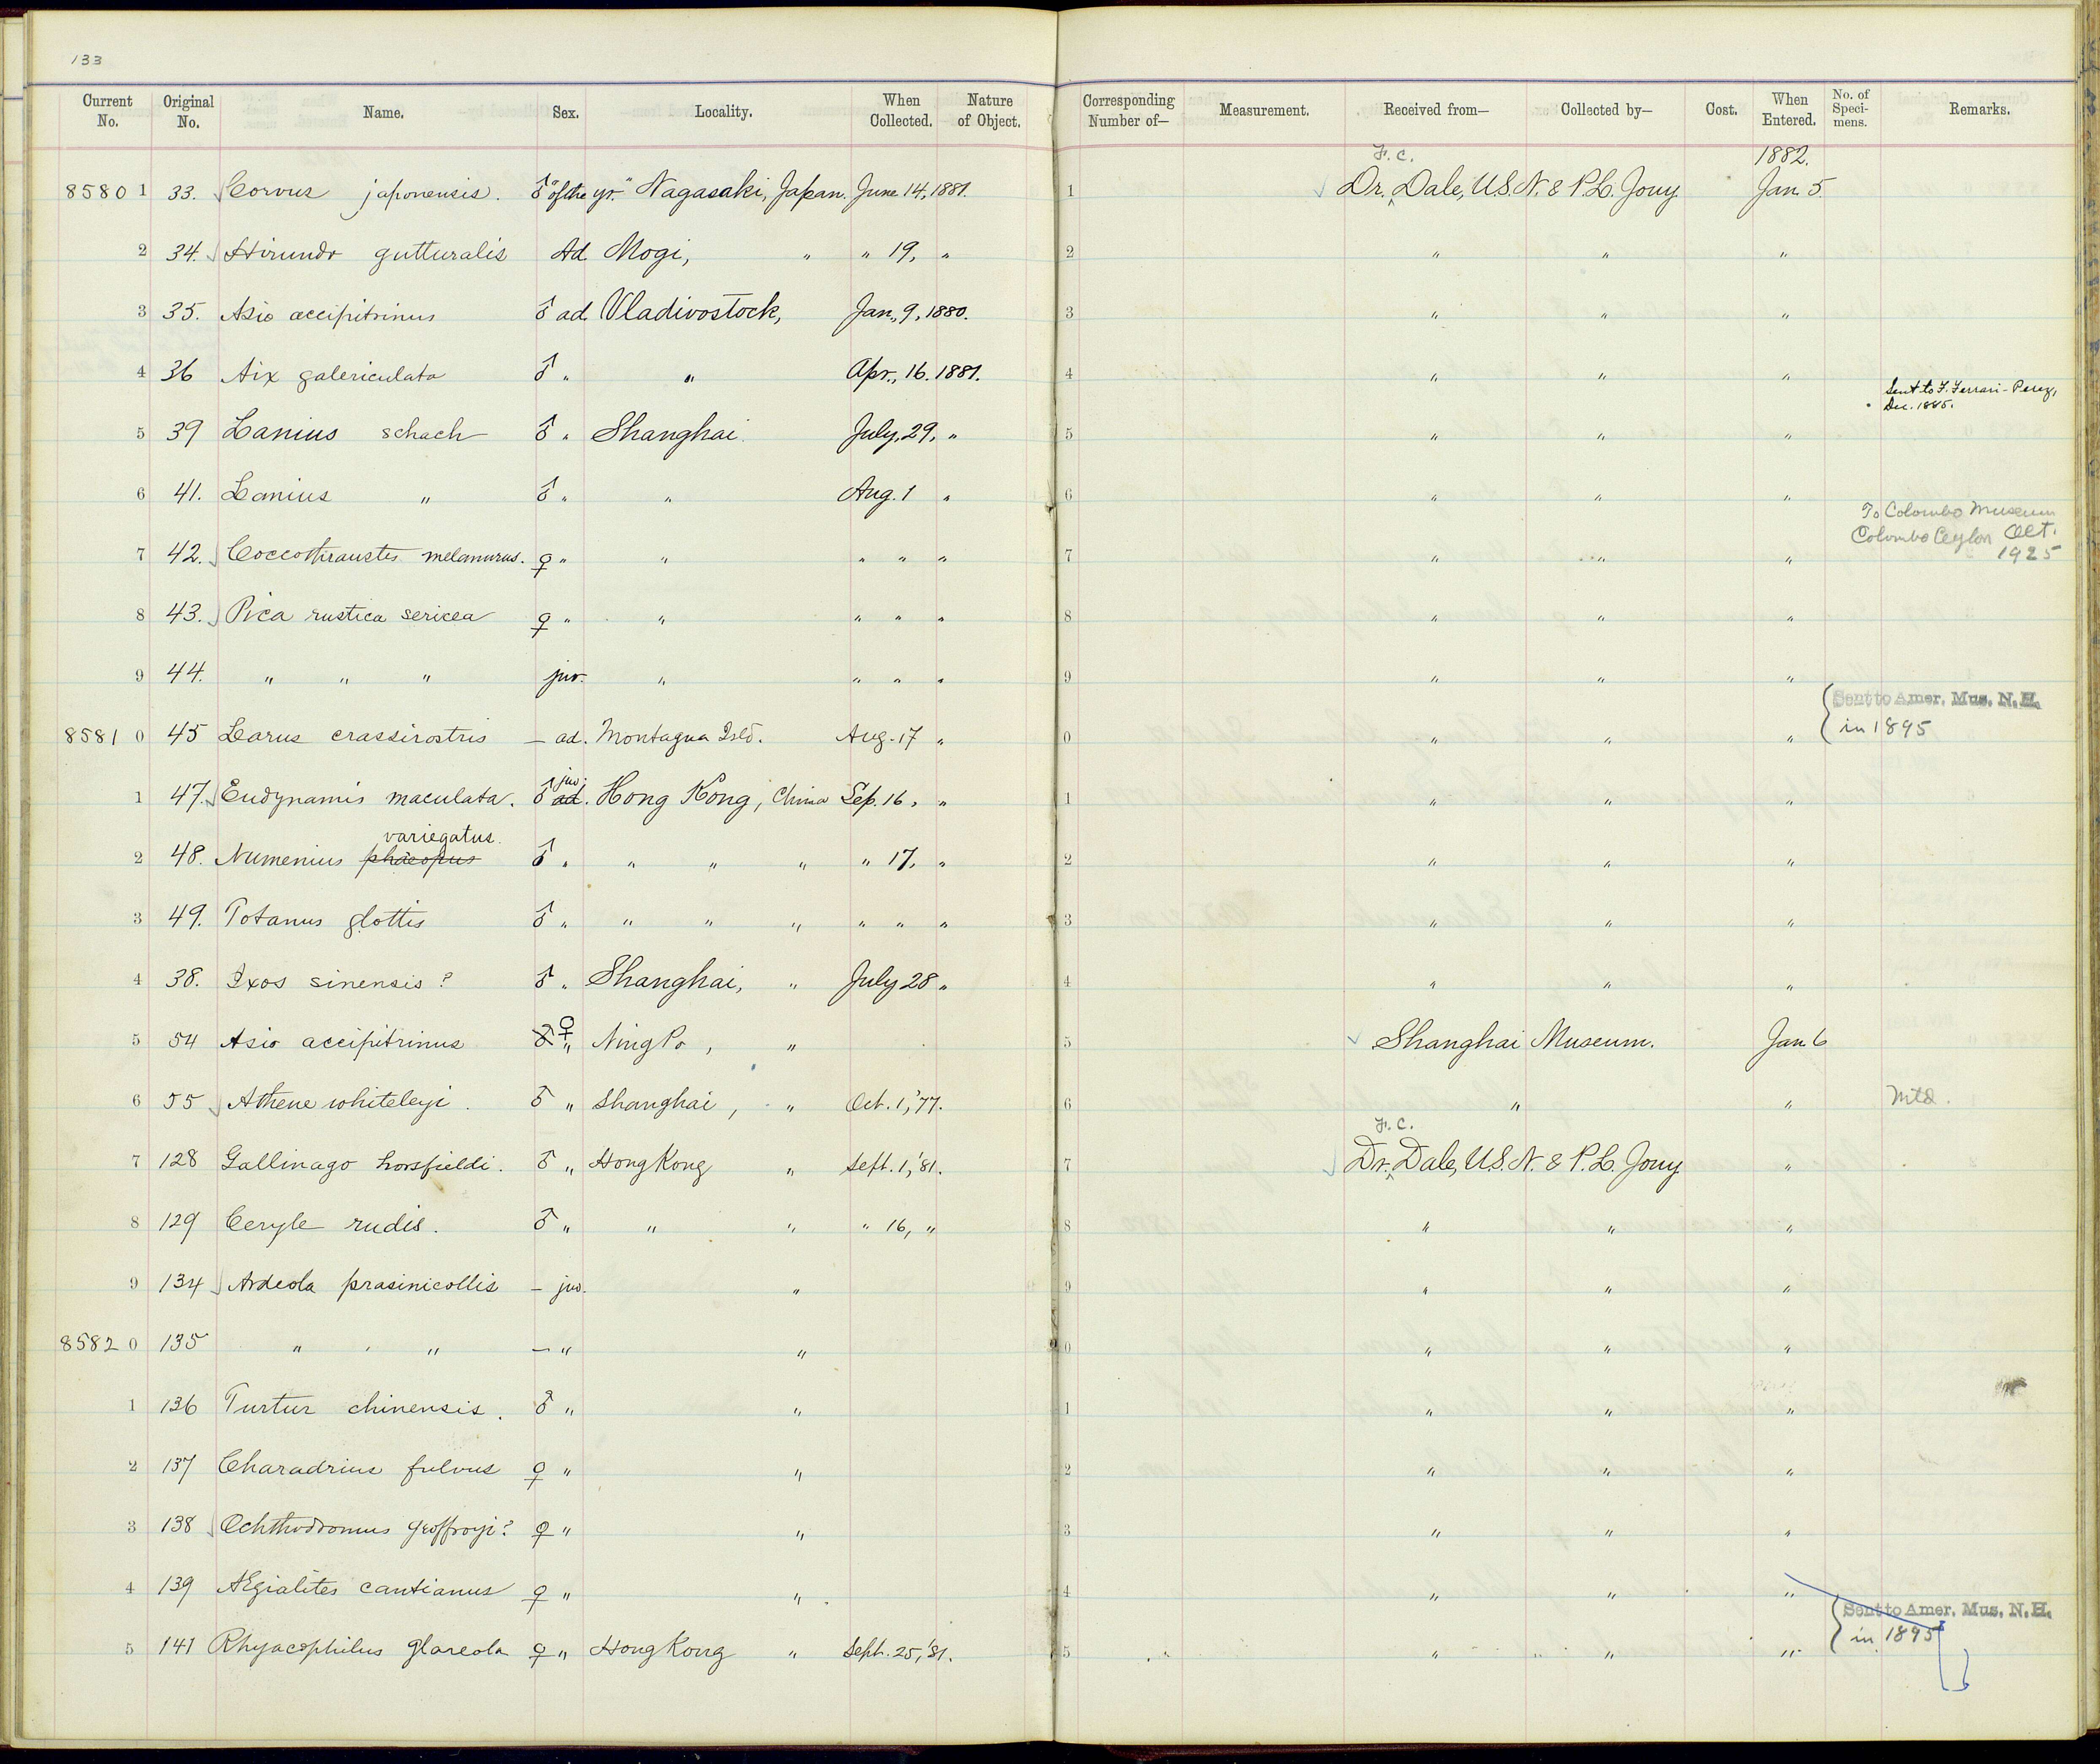 133
Current No. Original No. Name. Sex. Locality. When Collected. Nature of Object. Corresponding Number of— Measurement. Received from— Collected by— Cost. When Entered. No. of Speci- mens. Remarks.
F. C. 1882.
8580 1 33. Corvus japonensis. ♂ "of the yr." Nagasaki, Japan. June 14, 1881. 1 Dr. ^ Dale, U.S.N. & P.L. Jouy Jan. 5.
2 34. Hirundo gutturalis Ad. Mogi, " " 19, " 2 " " "
3 35. Asio accipitrinus ♂ ad. Vladivostock, Jan., 9, 1880. 3 " " "
4 36 Aix galericulata ♂ " " Apr., 16. 1881. 4 " " "
Sent to F. Ferrari-Perez, Dec. 1885.
5 39 Lanius schach ♂ " Shanghai. July, 29, " 5 " " "
6 41. Lanius " ♂ " " Aug. 1 " 6 " " "
To Colombo Museum
Colombo Ceylon Oct. 1925
7 42. Coccothraustes melanurus. ♀ " " " " " 7 " " "
8 43. Pica rustica sericea ♀ " " " " " 8 " " "
9 44. " " " juv. " " " " 9 " " "
Sent to Amer. Mus. N. H.
in 1895
8581 0 45 Larus crassirostris — ad. Montagua Isld. Aug. 17 " 0 " " "
juv.
1 47. Eudynamis maculata. ♂ ad. Hong Kong, China Sep. 16, " 1 " " "
variegatus.
2 48. Numenius phaeopus ♂ " " " " " 17, " 2 " " "
3 49. Totanus glottis ♂ " " " " " " " 3 " " "
4 38. Ixos sinensis? ♂ " Shanghai, " July 28 " 4 " " "
5 54 Asio accipitrinus ♂ ♀ " NingPo, " 5 Shanghai Museum. Jan. 6
6 55 Athene whiteleyi. ♂ " Shanghai, " Oct. 1, '77. 6 " " Mtd.
F. C.
7 128 Gallinago horsfieldi. ♂ " Hong Kong " Sept. 1, '81. 7 Dr. ^ Dale, U.S.N. & P.L. Jouy "
8 129 Ceryle rudis. ♂ " " " " 16, " 8 " " "
9 134 Ardeola prasinicollis — juv. " 9 " " "
8582 0 135 " " — " " 0 " " "
1 136 Turtur chinensis. ♂ " " 1 " " "
2 137 Charadrius fulvus ♀ " " 2 " " "
3 138 Ochthodromus geoffroyi? ♀ " " 3 " " "
4 139 Ægialites cantianus ♀ " " 4 " " "
Sent to Amer. Mus. N. H.
in 1895
5 141 Rhyacophilus glareola ♀ " Hong Kong " Sept. 25, '81. 5 " " "